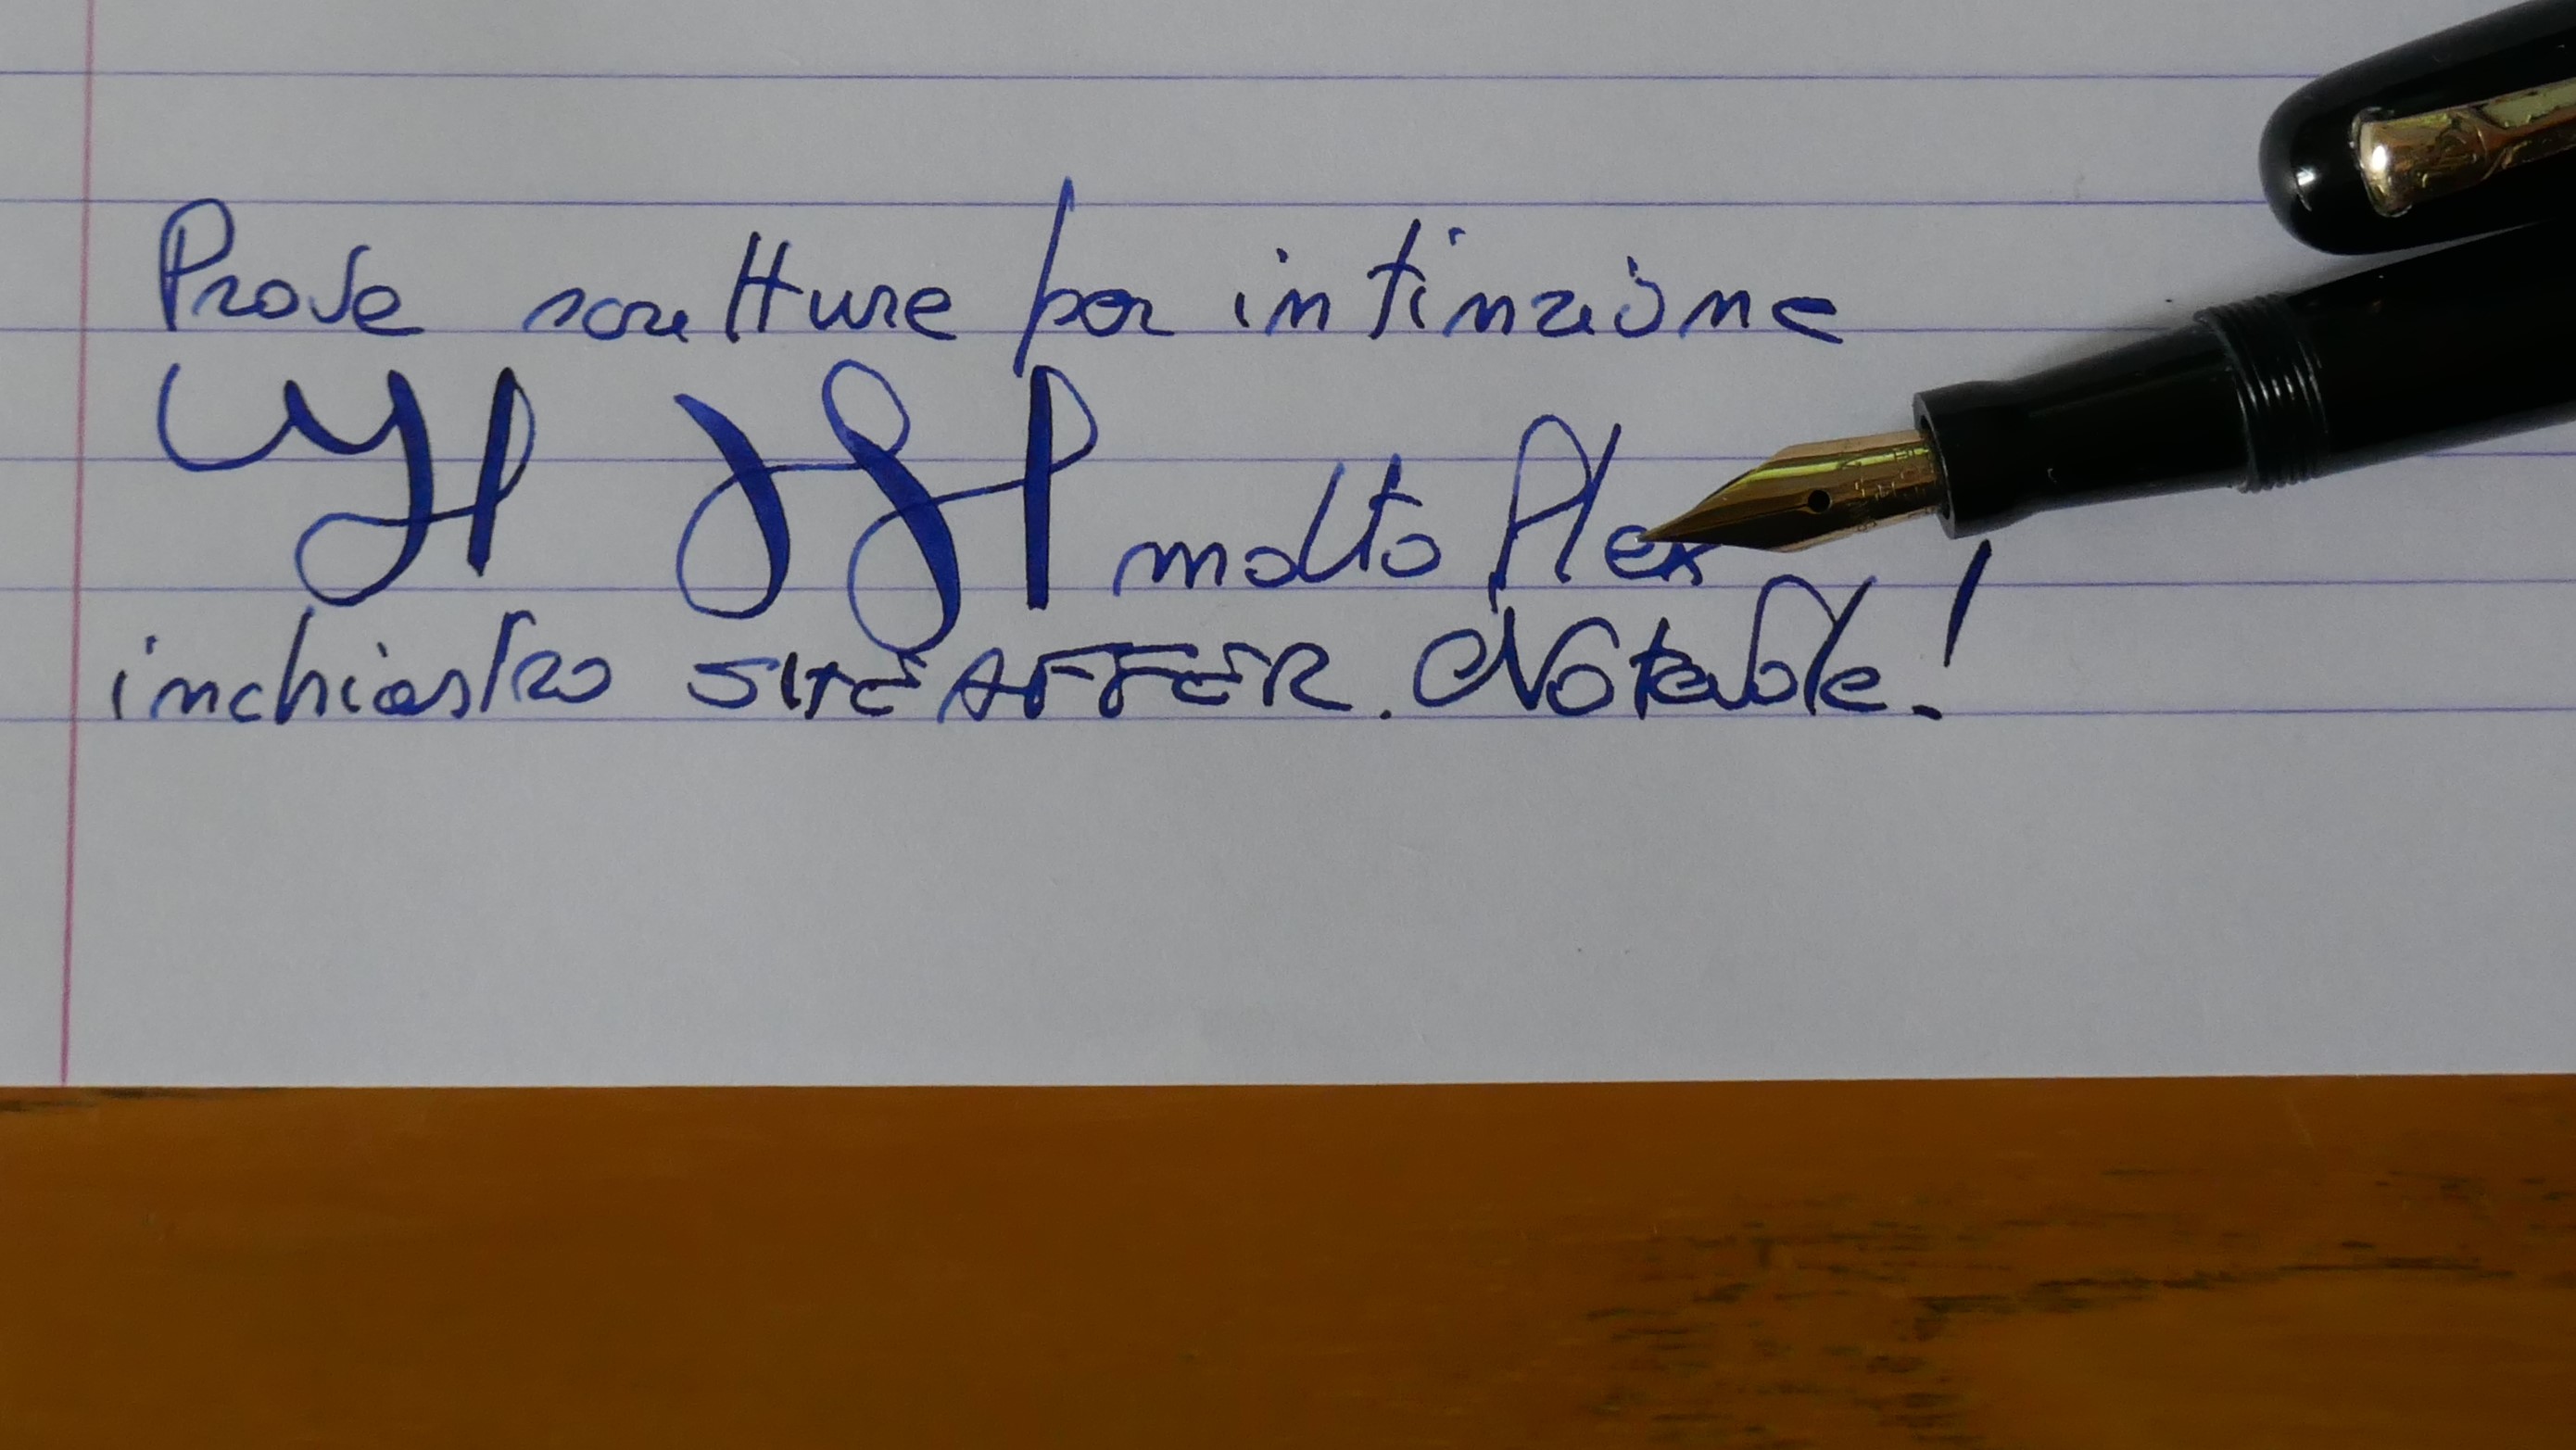 Prova scrittura per intinzione
molto flex
inchiostro SHEAFFER. Notevole!